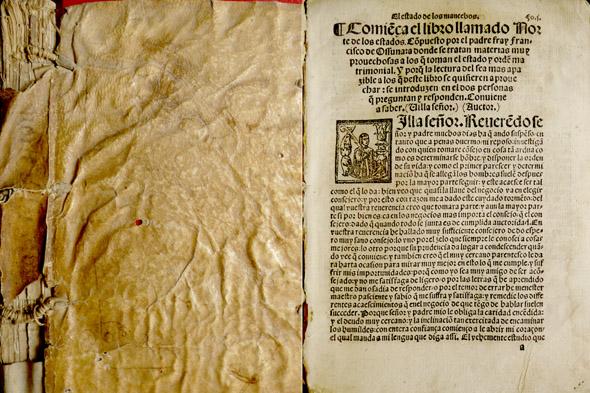 El estado de los mancebos. Fo. j.
¶ Comiẽça el libro llamado Nor
te de los estados. Cõpuesto por el padre fray Fran-
cisco de Ossuna: a donde se tratan materias muy
prouechosas a los q̃ toman el estado y ordẽ ma
trimonial. Y porq̃ la lectura del sea mas apa
zible a los q̃ deste libro se quisieren a proue
char: se introduzen en el dos personas
q̃ preguntan y responden. Conuiene
a saber. (Villa señor.) (Auctor.)
Villa señor. Reuerẽdo se
ñor y padre muchos dias ha q̃ ando suspẽso: en
tanto que a penas duermo ni reposo: inuestigã
do con quien tomare cõsejo en cosa tã ardua co
mo es determinarse hõbre: y disponer la orden
de su vida: y como el primer parescer y determi
naciõ
por la mayor parte seguir: y este acaesce ser tal
como el q̃ lo da: bien veo que quasi la llaue del negocio va en elegir
consejero: y por esto con razon me a dado este cuydado tormẽto: del
qual vuestra reuerencia creo que tomara parte: y aun la mayor par-
te: si por bien
sejero: dado q̃ quando todo se junta es de cumplida auctoridad. En
vuestra reuerencia he hallado muy sufficiente consejero do espe-
ro muy sano consejo: lo vno por el zelo que siempre le conosci a cosas
mejores: lo otro porque su prudencia da lugar a condescender quã-
do vee q̃ conuiene: y tambien creo q̃ el muy cercano parentesco le da
ra harta ocasion para mirar muy mejor en esto lo q̃ me cumple: y suf
frir mis importunidades: porq̃ como yo sea muy amigo de ser acõ-
sejado: y no me satisfaga de ligero: o por las letras q̃ he aprendido
que me dan osadia de responder: o por el temor de errar: he menester
maestro paciente y sabio q̃ me sufra y satisfaga: y remedie los diffe
rentes acaescimientos q̃ en el negocio de que tẽgo de hablar suelen
succeder. Porque señor y padre mio le obliga la caridad encẽdida:
y el deudo muy cercano: y la inclinaciõ tan exercitada de encaminar
los humildes: con entera confiança comienço a le abrir mi coraçon:
el qual manda a mi lengua que diga assi. El vehemente estudio que
a